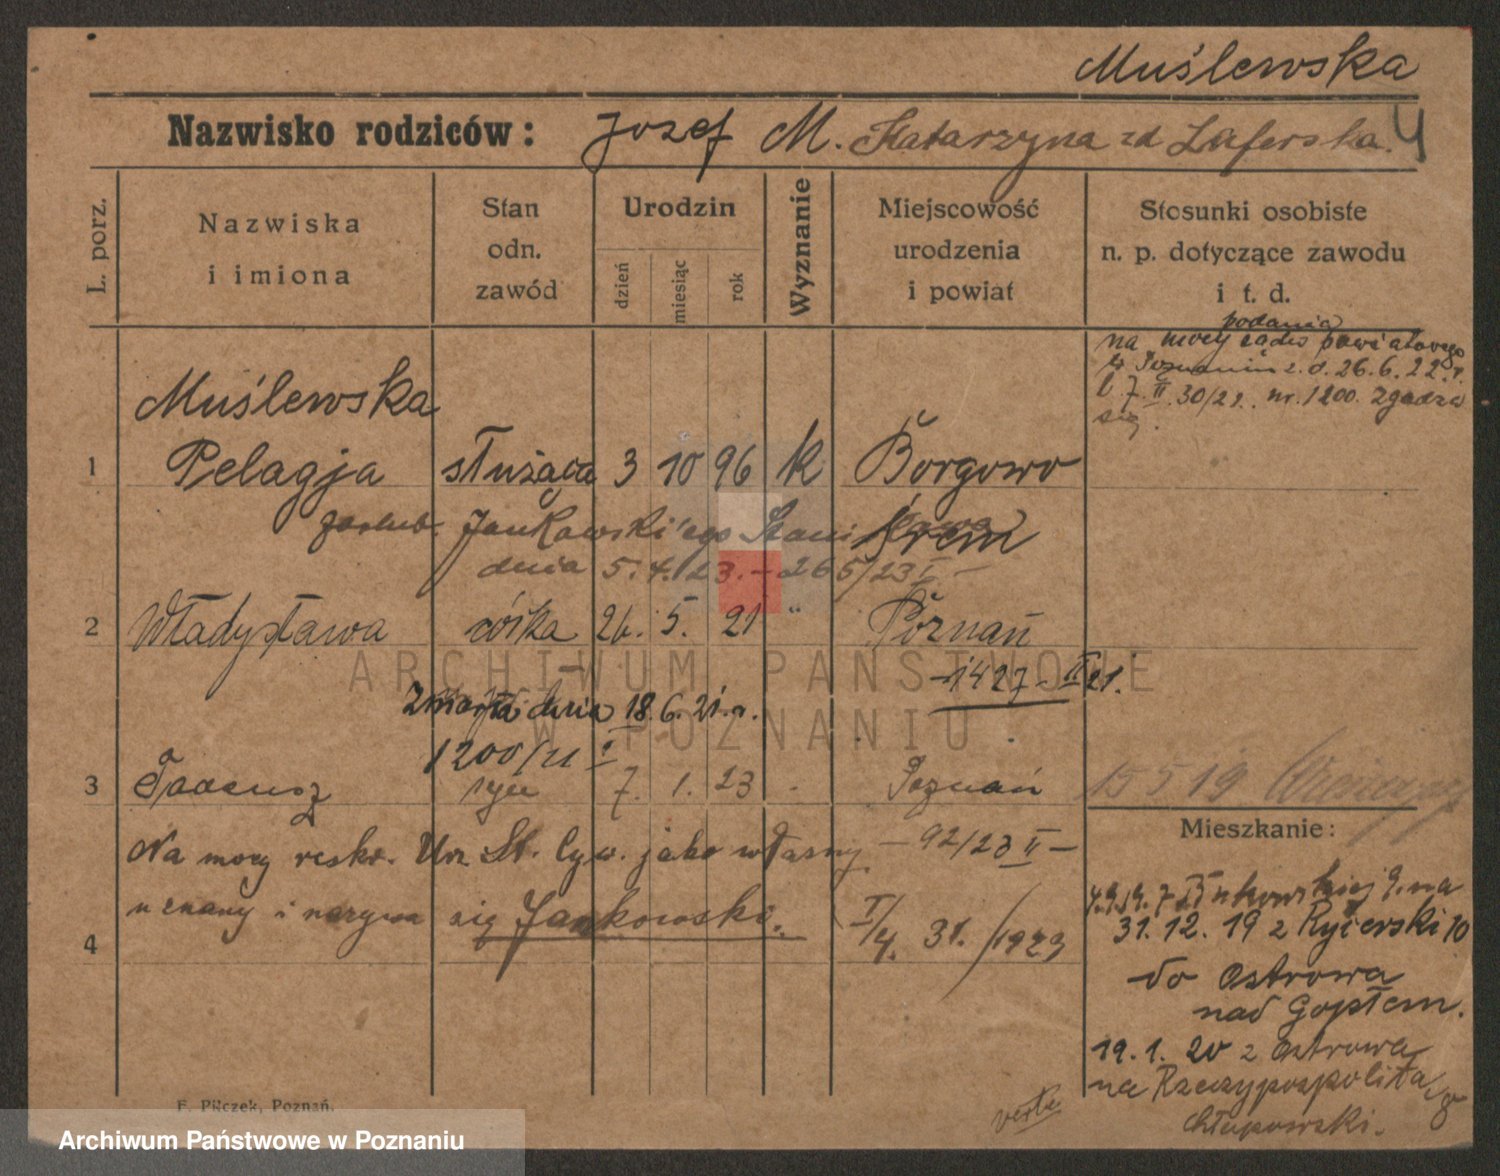 Muślewska
Nazwisko rodziców: Jozef M. Katarzyna zd Laferska. 4
L. porz.
Nazwiska
i imiona
Stan
odn.
zawód
Urodzin
dzień
miesiąc
rok
Wyznanie
Miejscowość
urodzenia
i powiat
Stosunki osobiste
n. p. dotyczące zawodu
i t. d.
podania
na mocy sądu powiatowego
w Poznaniu z. d. 26.6.22.r.
l. 7. II. 30/22. nr. 1200. zgadza
się.
Muślewska
1 Pelagja służąca 3 10 96 k Borgowo
zaślub. Jankowski'ego Stani Śrem
dnia 5.4.23. - 265/23 I. -
2 Władysława córka 26. 5. 21 " Poznań
-1427- II 21.
Zmarła dnia 18.6.21.r.
1200/21 I
3 Tadeusz syn 7. 1. 23 Poznań
15519
Na mocy reskr. Urz. St. Cyw. jako własny - 92/23 II -
uznany i nazywa się Jankowski.
4 I/4. 31. /1923
Mieszkanie:
31.12.19 z Rycerski 10
do Ostrowa
nad Gopłem.
19.1.20 z Ostrowa
na Rzeczypospolita 8
Chłapowski.
verte
F. Pilczek, Poznań.
ARCHIWUM PAŃSTWOWE
W POZNANIU
Archiwum Państwowe w Poznaniu